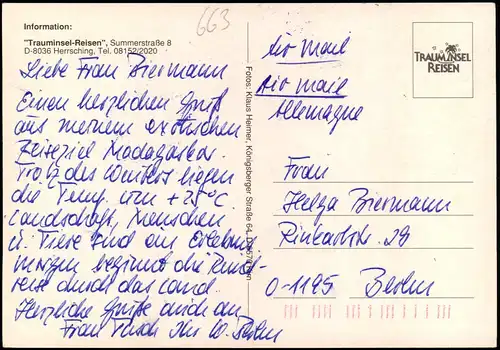 Information:
"Trauminsel-Reisen", Summerstraße 8
D-8036 Herrsching, Tel. 08152/2020
663
Liebe Frau Biermann
Einen herzlichen Gruß
aus meinem exotischen
Reiseziel Madagaskar.
Trotz des Winters liegen
die Temp. um +25°C.
Landschaft, Menschen
u. Tiere sind ein Erlebnis
morgen beginnt die Rund-
reise durch das Land.
Herzliche Grüße auch an
Frau Ihr W.
Fotos: Klaus Heimer, Königsberger Straße 64,
TRAUMINSEL
REISEN
Air mail
Air mail
Allemagne
Frau
Helga Biermann
28
O-1195 Berlin